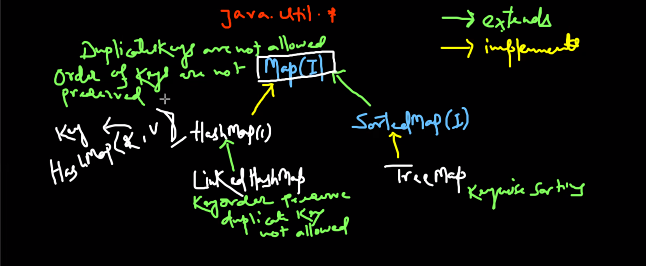 java.util.*
extends
implements
Duplicate Keys are not allowed
Order of Keys are not
preserved
Map(I)
Key
HashMap(K,V)
HashMap(c)
SortedMap(I)
LinkedHashMap
Key order preserve
duplicate Key
not allowed
TreeMap
Keywise sorting